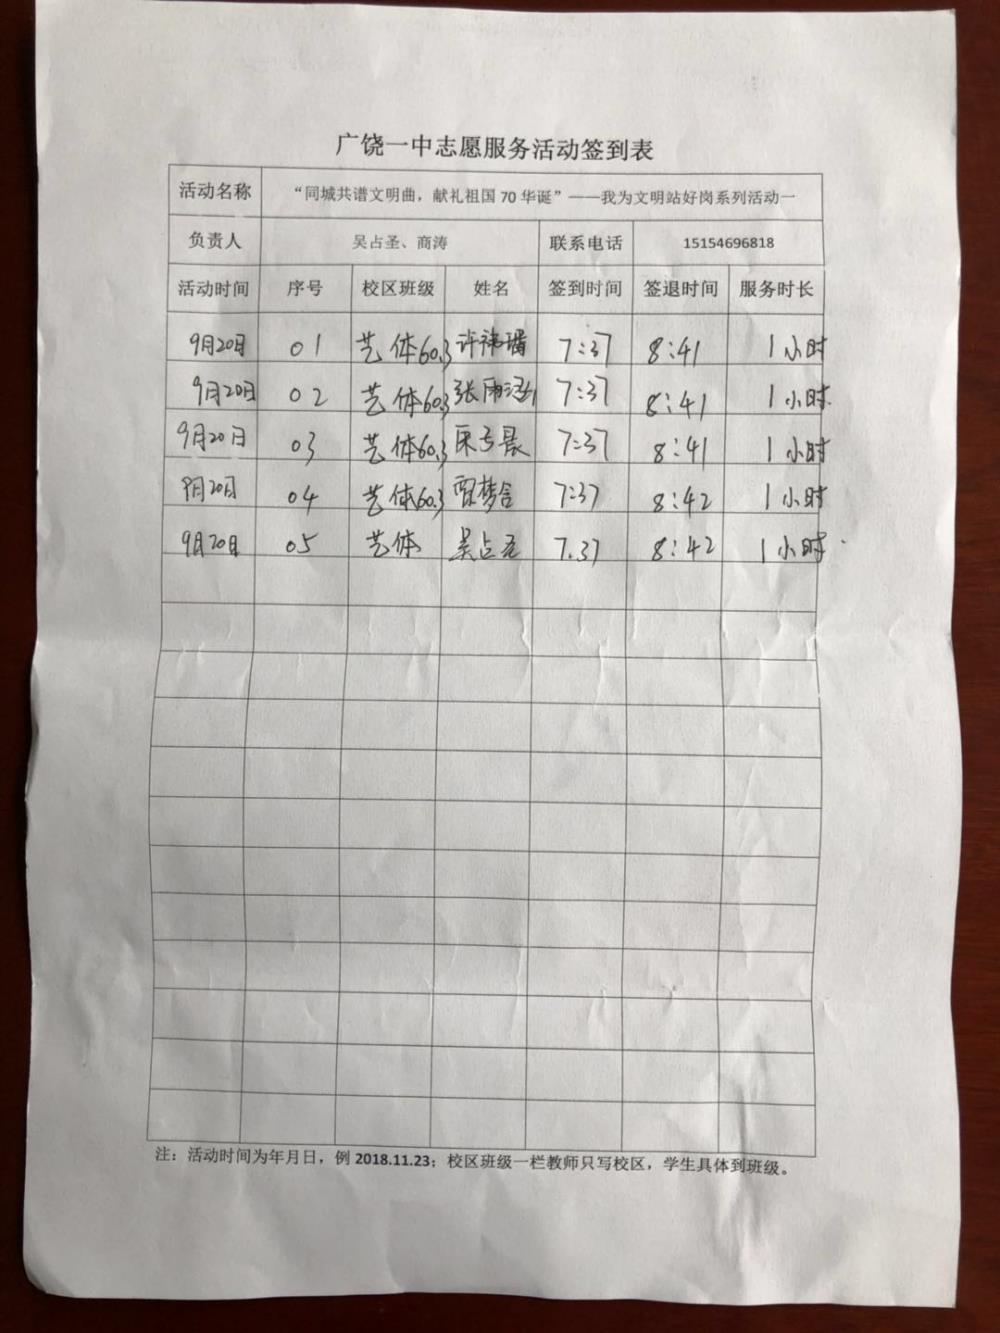 广饶一中志愿服务活动签到表
活动名称 “同城共谱文明曲，献礼祖国70华诞”——我为文明站好岗系列活动一
负责人 吴占圣、商涛 联系电话 15154696818
活动时间 序号 校区班级 姓名 签到时间 签退时间 服务时长
9月20日 01 艺体60.3 许祎璠 7:37 8:41 1小时
9月20日 02 艺体60.3 张雨涵 7:37 8:41 1小时.
9月20日 03 艺体60.3 7:37 8:41 1小时
9月20日 04 艺体60.3 贾梦含 7:37 8:42 1小时
9月20日 05 艺体 吴占圣 7.37 8:42 1小时.
注：活动时间为年月日，例 2018.11.23；校区班级一栏教师只写校区，学生具体到班级。